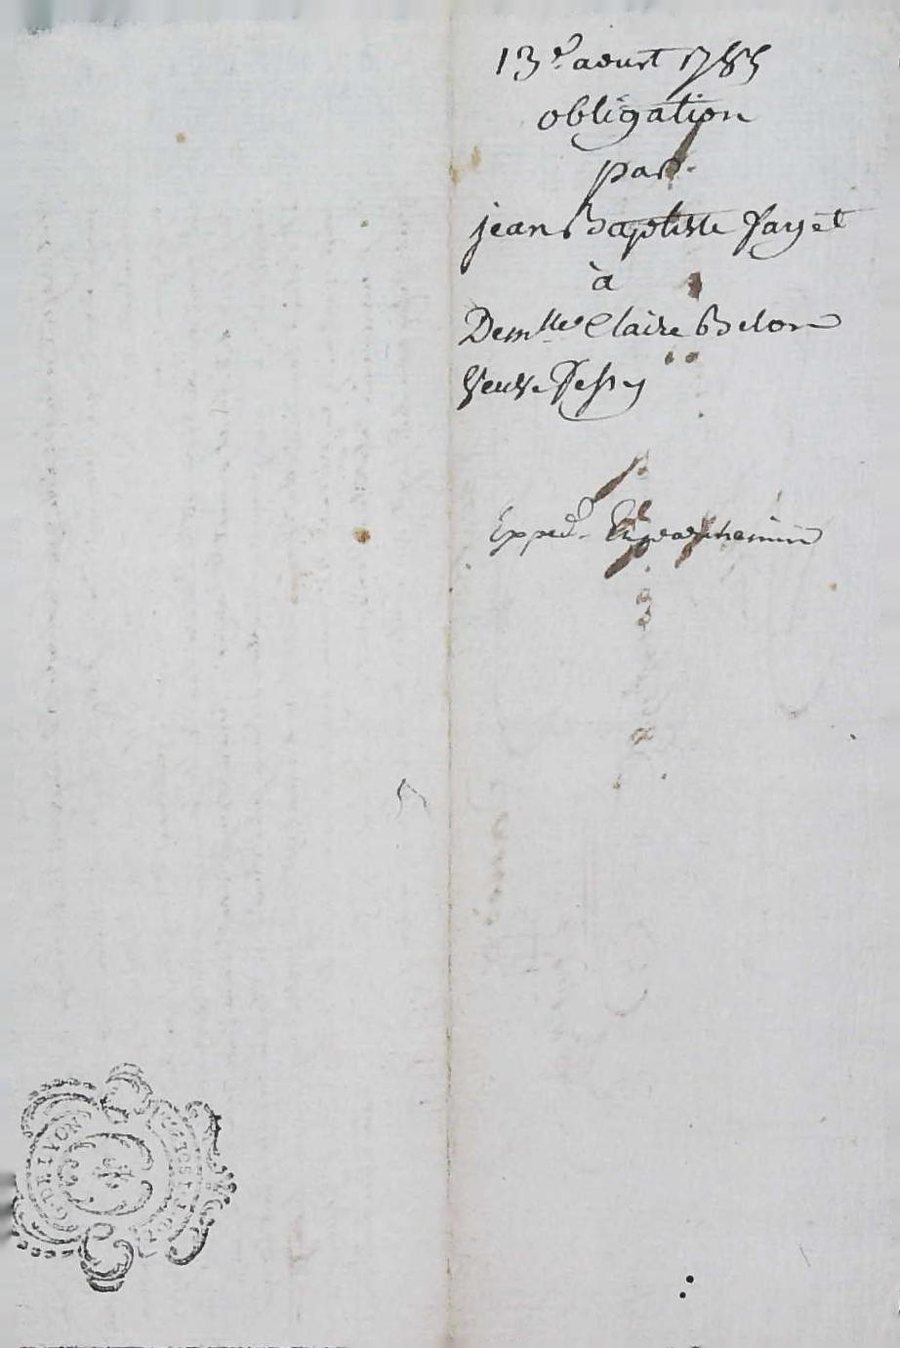 13e. aoust 1785
obligation
par
jean Baptiste Fayet
à
Demlle. Claire Belon
Veuve Pessy
Expéd. En parchemin